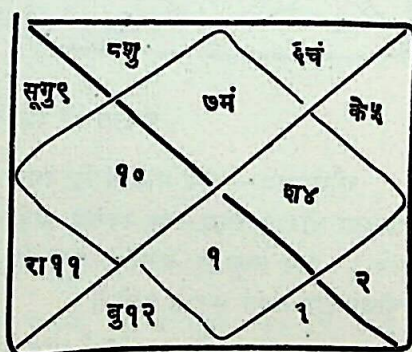 ८शु ६चं
सूगु९ ७मं के५
१० श४
रा११ १ २
बु१२ ३